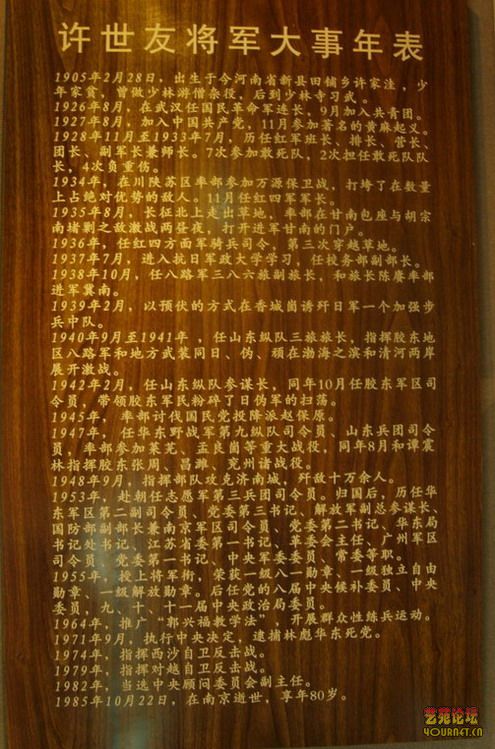 许世友将军大事年表
1905年2月28日，出生于今河南省新县田铺乡许家洼，少
年家贫，曾做少林游僧杂役，后到少林寺习武。
1926年8月，在武汉任国民革命军连长，9月加入共青团。
1927年8月，加入中国共产党，11月参加著名的黄麻起义。
1928年11月至1933年7月，历任红军班长、排长、营长、
团长、副军长兼师长。7次参加敢死队，2次担任敢死队队
长，4次负重伤。
1934年，在川陕苏区率部参加万源保卫战，打垮了在数量
上占绝对优势的敌人。11月任红四军军长。
1935年8月，长征北上走出草地，率部在甘南包座与胡宗
南堵剿之敌激战两昼夜，打开进军甘南的门户。
1936年，任红四方面军骑兵司令，第三次穿越草地。
1937年7月，进入抗日军政大学学习，任校务部副部长。
1938年10月，任八路军三八六旅副旅长，和旅长陈赓率部
进军冀南。
1939年2月，以预伏的方式在香城崮诱歼日军一个加强步
兵中队。
1940年9月至1941年，任山东纵队三旅旅长，指挥胶东地
区八路军和地方武装同日、伪、顽在渤海之滨和清河两岸
展开激战。
1942年2月，任山东纵队参谋长，同年10月任胶东军区司
令员，带领胶东军民粉碎了日伪军的扫荡。
1945年，率部讨伐国民党投降派赵保原。
1947年，任华东野战军第九纵队司令员、山东兵团司令
员，率部参加莱芜、孟良崮等重大战役，同年8月和谭震
林指挥胶东张周、昌潍、兖州诸战役。
1948年9月，指挥部队攻克济南城，歼敌十万余人。
1953年，赴朝任志愿军第三兵团司令员。归国后，历任华
东军区第二副司令员、党委第三书记、解放军副总参谋长、
国防部副部长兼南京军区司令员、党委第二书记、华东局
书记处书记、江苏省委第一书记、革委会主任、广州军区
司令员、党委第一书记、中央军委委员、常委等职。
1955年，授上将军衔，荣获一级八一勋章、一级独立自由
勋章、一级解放勋章。后任党的八届中央候补委员、中央
委员，九、十、十一届中央政治局委员。
1964年，推广“郭兴福教学法”，开展群众性练兵运动。
1971年9月，执行中央决定，逮捕林彪华东死党。
1974年，指挥西沙自卫反击战。
1979年，指挥对越自卫反击战。
1982年，当选中央顾问委员会副主任。
1985年10月22日，在南京逝世，享年80岁。
艺苑论坛
YOURNET.CN